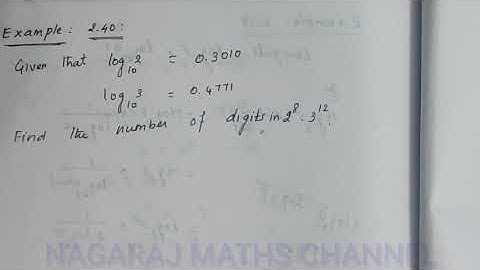 Example: 2.40:
Given that log₁₀2 = 0.3010
log₁₀3 = 0.4771
Find the number of digits in 2⁸·3¹².
NAGARAJ MATHS CHANNEL